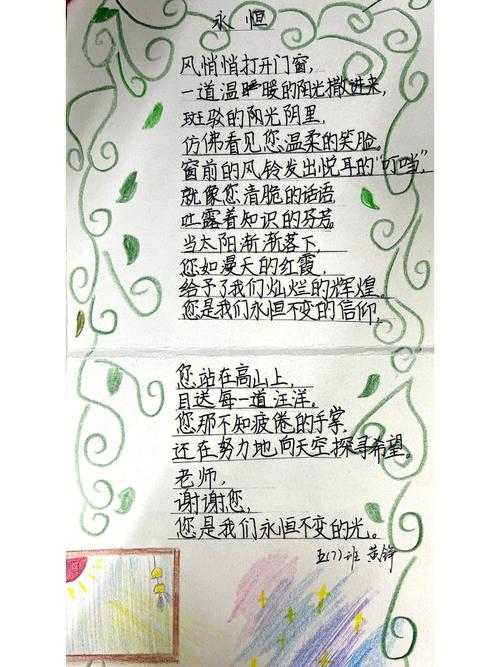 永恒
风悄悄打开门窗,
一道温暖暖的阳光撒进来,
斑驳的阳光阴里,
仿佛看见您温柔的笑脸。
窗前的风铃发出悦耳的“叮当”,
就像您清脆的话语,
吐露着知识的芬芳。
当太阳渐渐落下,
您如漫天的红霞,
给予了我们灿烂的辉煌。
您是我们永恒不变的信仰,
您站在高山上,
目送每一道汪洋。
您那不知疲倦的手掌,
还在努力地向天空探寻希望。
老师,
谢谢您,
您是我们永恒不变的光。
五(7)班 黄铮